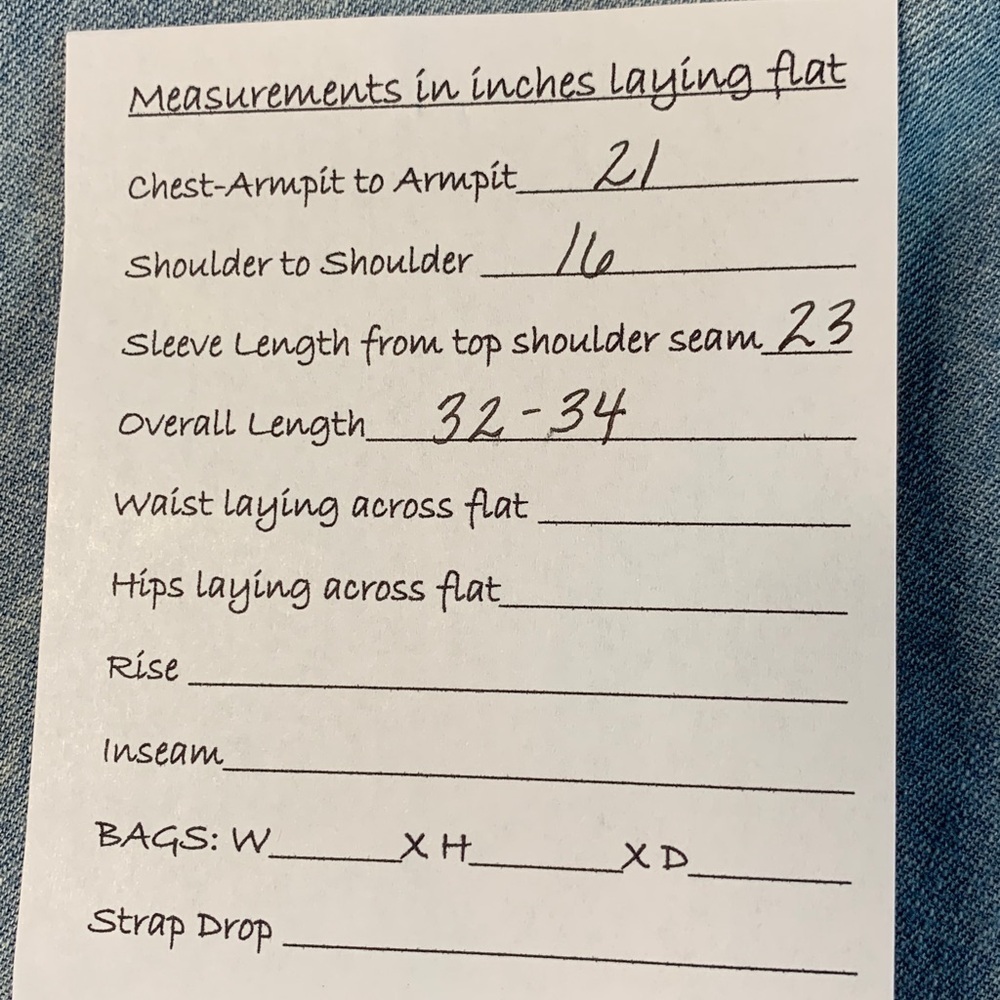 Measurements in inches laying flat
Chest-Armpit to Armpit 21
Shoulder to Shoulder 16
Sleeve Length from top shoulder seam 23
Overall Length 32-34
Waist laying across flat
Hips laying across flat
Rise
Inseam
BAGS: W______X H______X D______
Strap Drop